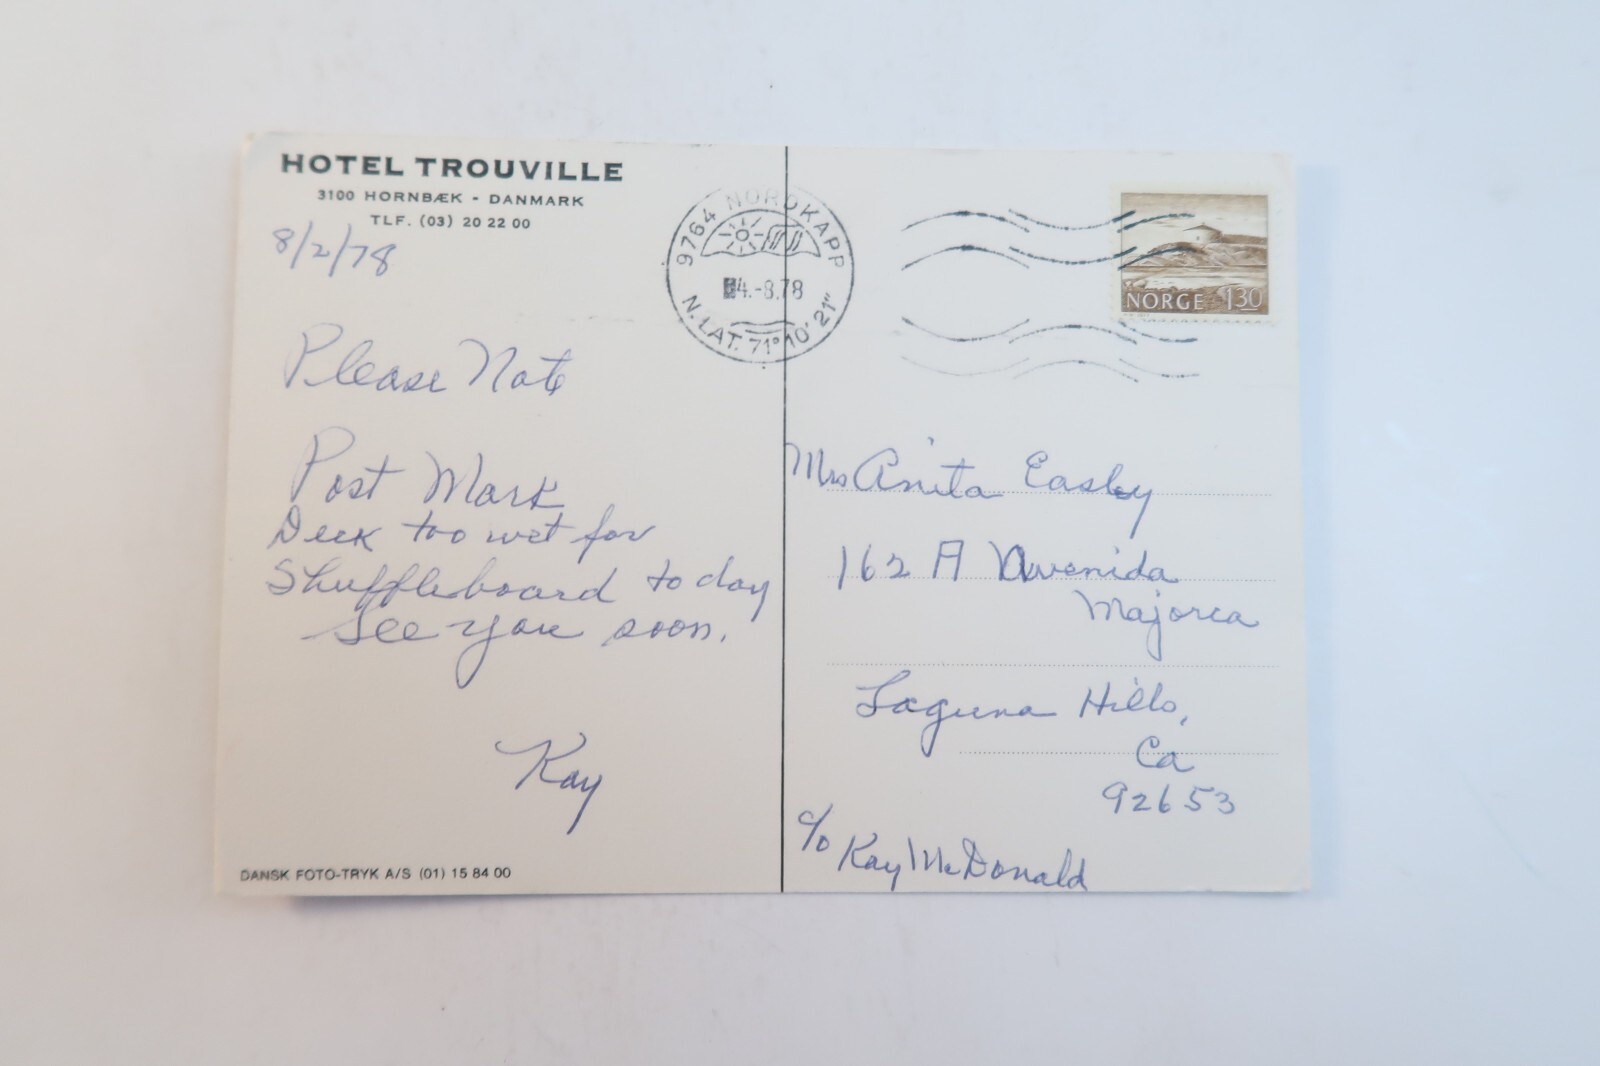 HOTEL TROUVILLE
3100 HORNBÆK - DANMARK
TLF. (03) 20 22 00
8/2/78
Please Note
Post Mark
Deck too wet for
Shuffleboard today
See you soon.
Kay
DANSK FOTO-TRYK A/S (01) 15 84 00
9764 NORDKAPP
4.-8.78
N.LAT. 71°10'21"
NORGE 130
Mrs Anita Easley
162 A Avenida
Majorca
Laguna Hills,
Ca
92653
c/o Kay McDonald